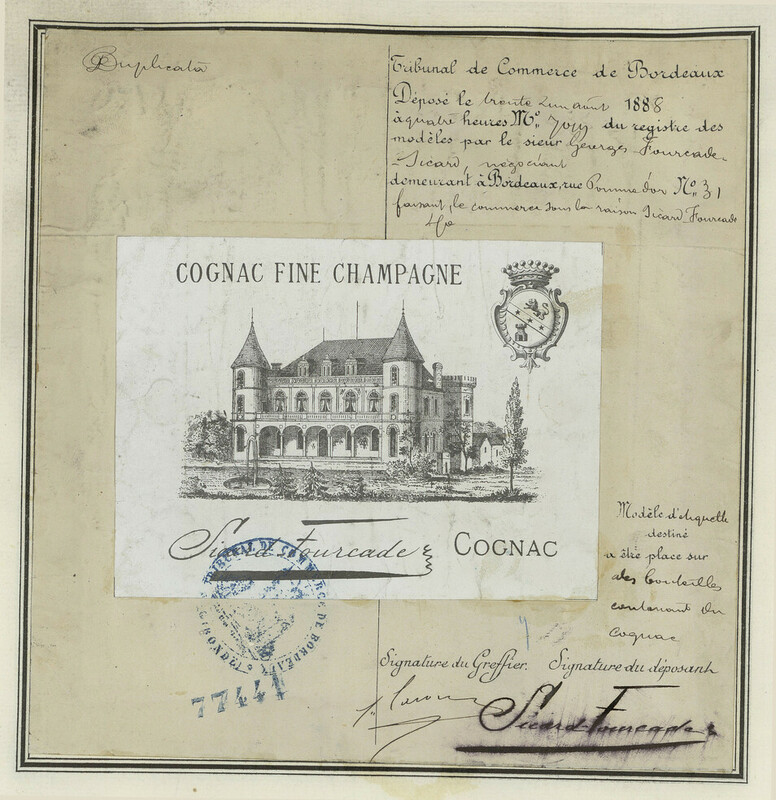 Duplicata
Tribunal de Commerce de Bordeaux
Déposé le trente un août 1888
à quatre heures M° du registre des
modèles par le sieur Georges Fourcade-
-Sicard, négociant
demeurant à Bordeaux, rue Pomme d'or N° 31
faisant le commerce sous la raison Sicard Fourcade
COGNAC FINE CHAMPAGNE
Sicard-Fourcade
COGNAC
TRIBUNAL DE COMMERCE DE BORDEAUX
(GIRONDE)
77441
Modèle d'étiquette
destiné
a être place sur
des bouteilles
contenant du
cognac
Signature du Greffier. Signature du déposant
Sicard-Fourcade